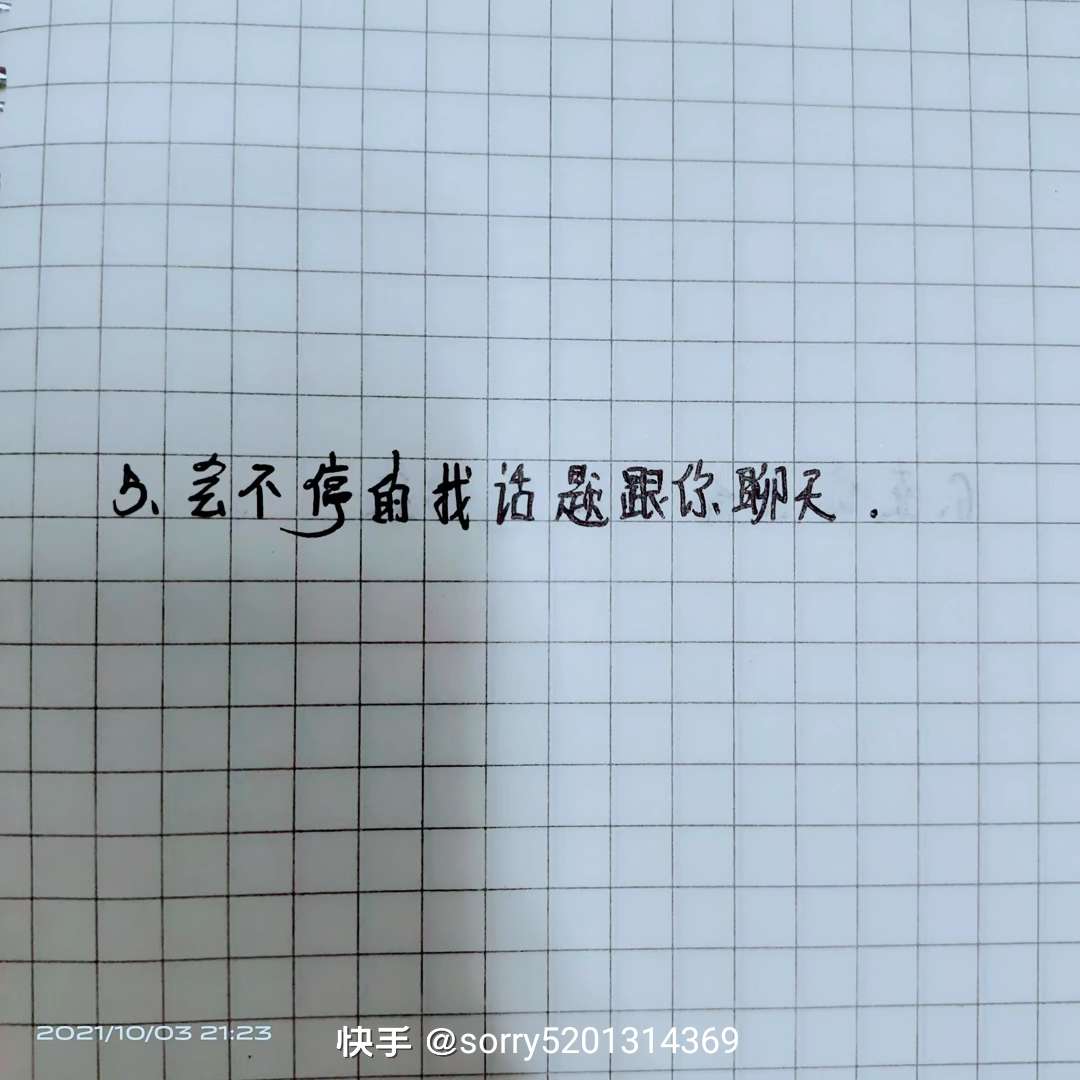 5、会不停的找话题跟你聊天.
2021/10/03 21:23
快手 @sorry5201314369